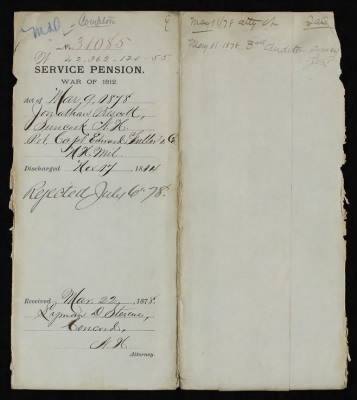 Compton
No. 31085
42.362-120-55
SERVICE PENSION.
WAR OF 1812.
Act of Mar. 9, 1878
Jonathan Prescott,
N. H.
Pvt. Capt. Edward Fuller's Co.
N.H. Mil.
Discharged Nov 17 1814
Rejected July 6" 78.
Received Mar. 22, 1878.
Lyman D. Stevens,
Concord,
N. H.
Attorney.
May 1878
May 11 1878 3rd Auditor